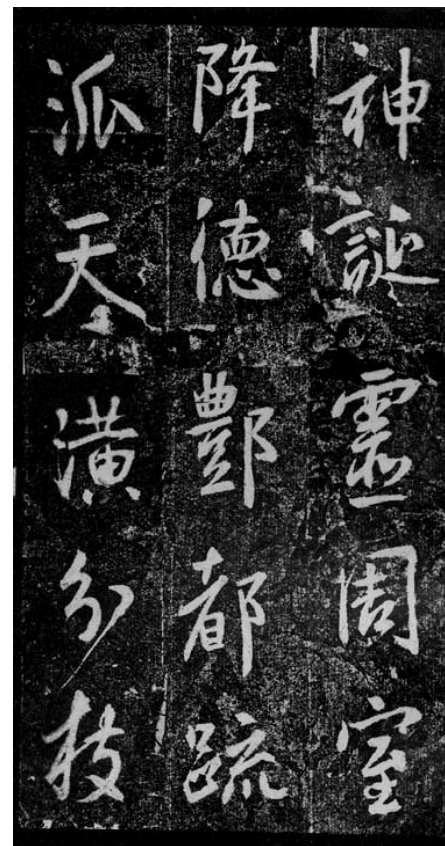 神誕靈周室
降德酆都䟽
派天潢分枝